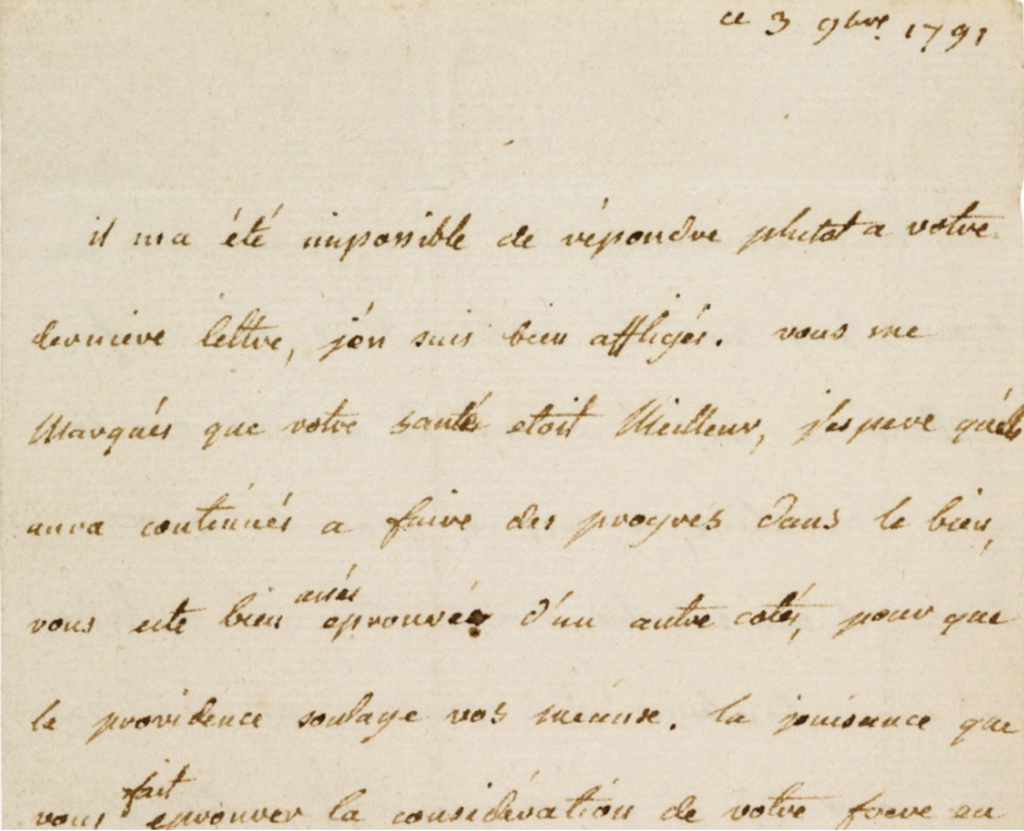 ce 3 9bre 1791
il ma été impossible de répondre plutot a votre
derniere lettre, j'en suis bien affligés. vous me
Marqués que votre santé etoit Meilleur, j'espere qu'elle
aura continués a faire des progres dans le bien,
vous este bien assés eprouvée d'un autre cotés, pour que
la providence soulage vos . la jouisance que
vous fait eprouver la considération de votre frere en